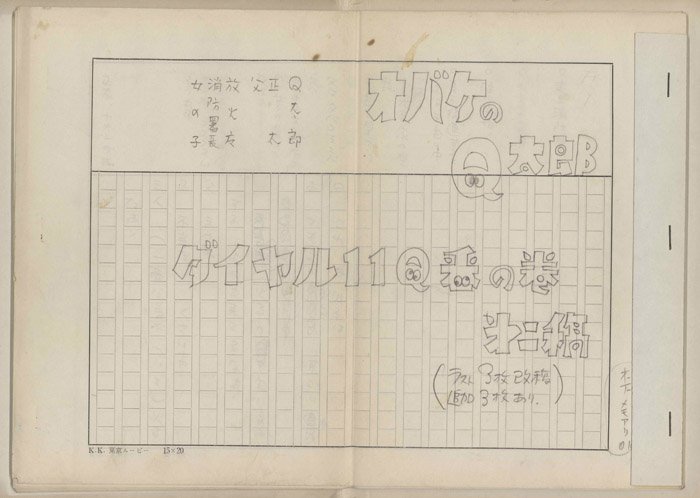 オバケの
Q太郎
Q太郎
正太
父
放火友
消防署長
女の子
ダイヤル11Q番の巻
第二稿
(ラスト3枚改稿
追加3枚あり.)
K.K. 東京ムービー 15×20